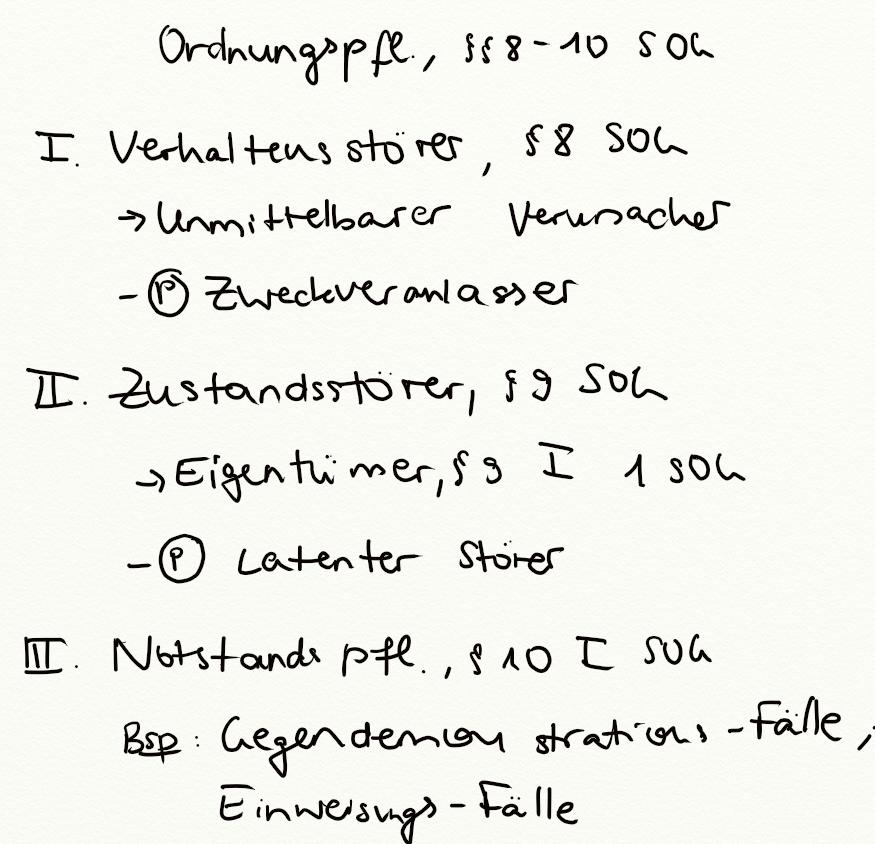 Ordnungspfl., §§ 8-10 SOG
I. Verhaltensstörer, § 8 SOG
→ Unmittelbarer Verursacher
- (P) Zweckveranlasser
II. Zustandsstörer, § 9 SOG
→ Eigentümer, § 9 I 1 SOG
- (P) Latenter Störer
III. Notstandspfl., § 10 I SOG
Bsp: Gegendemonstrations-Fälle,
Einweisungs-Fälle